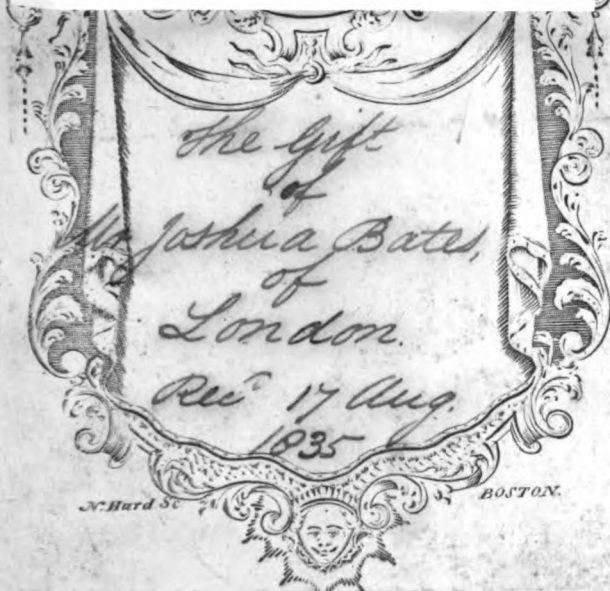 The Gift
of
Mr Joshua Bates,
of
London.
Rec'd 17 Aug.
1835
N. Hurd Sc BOSTON.